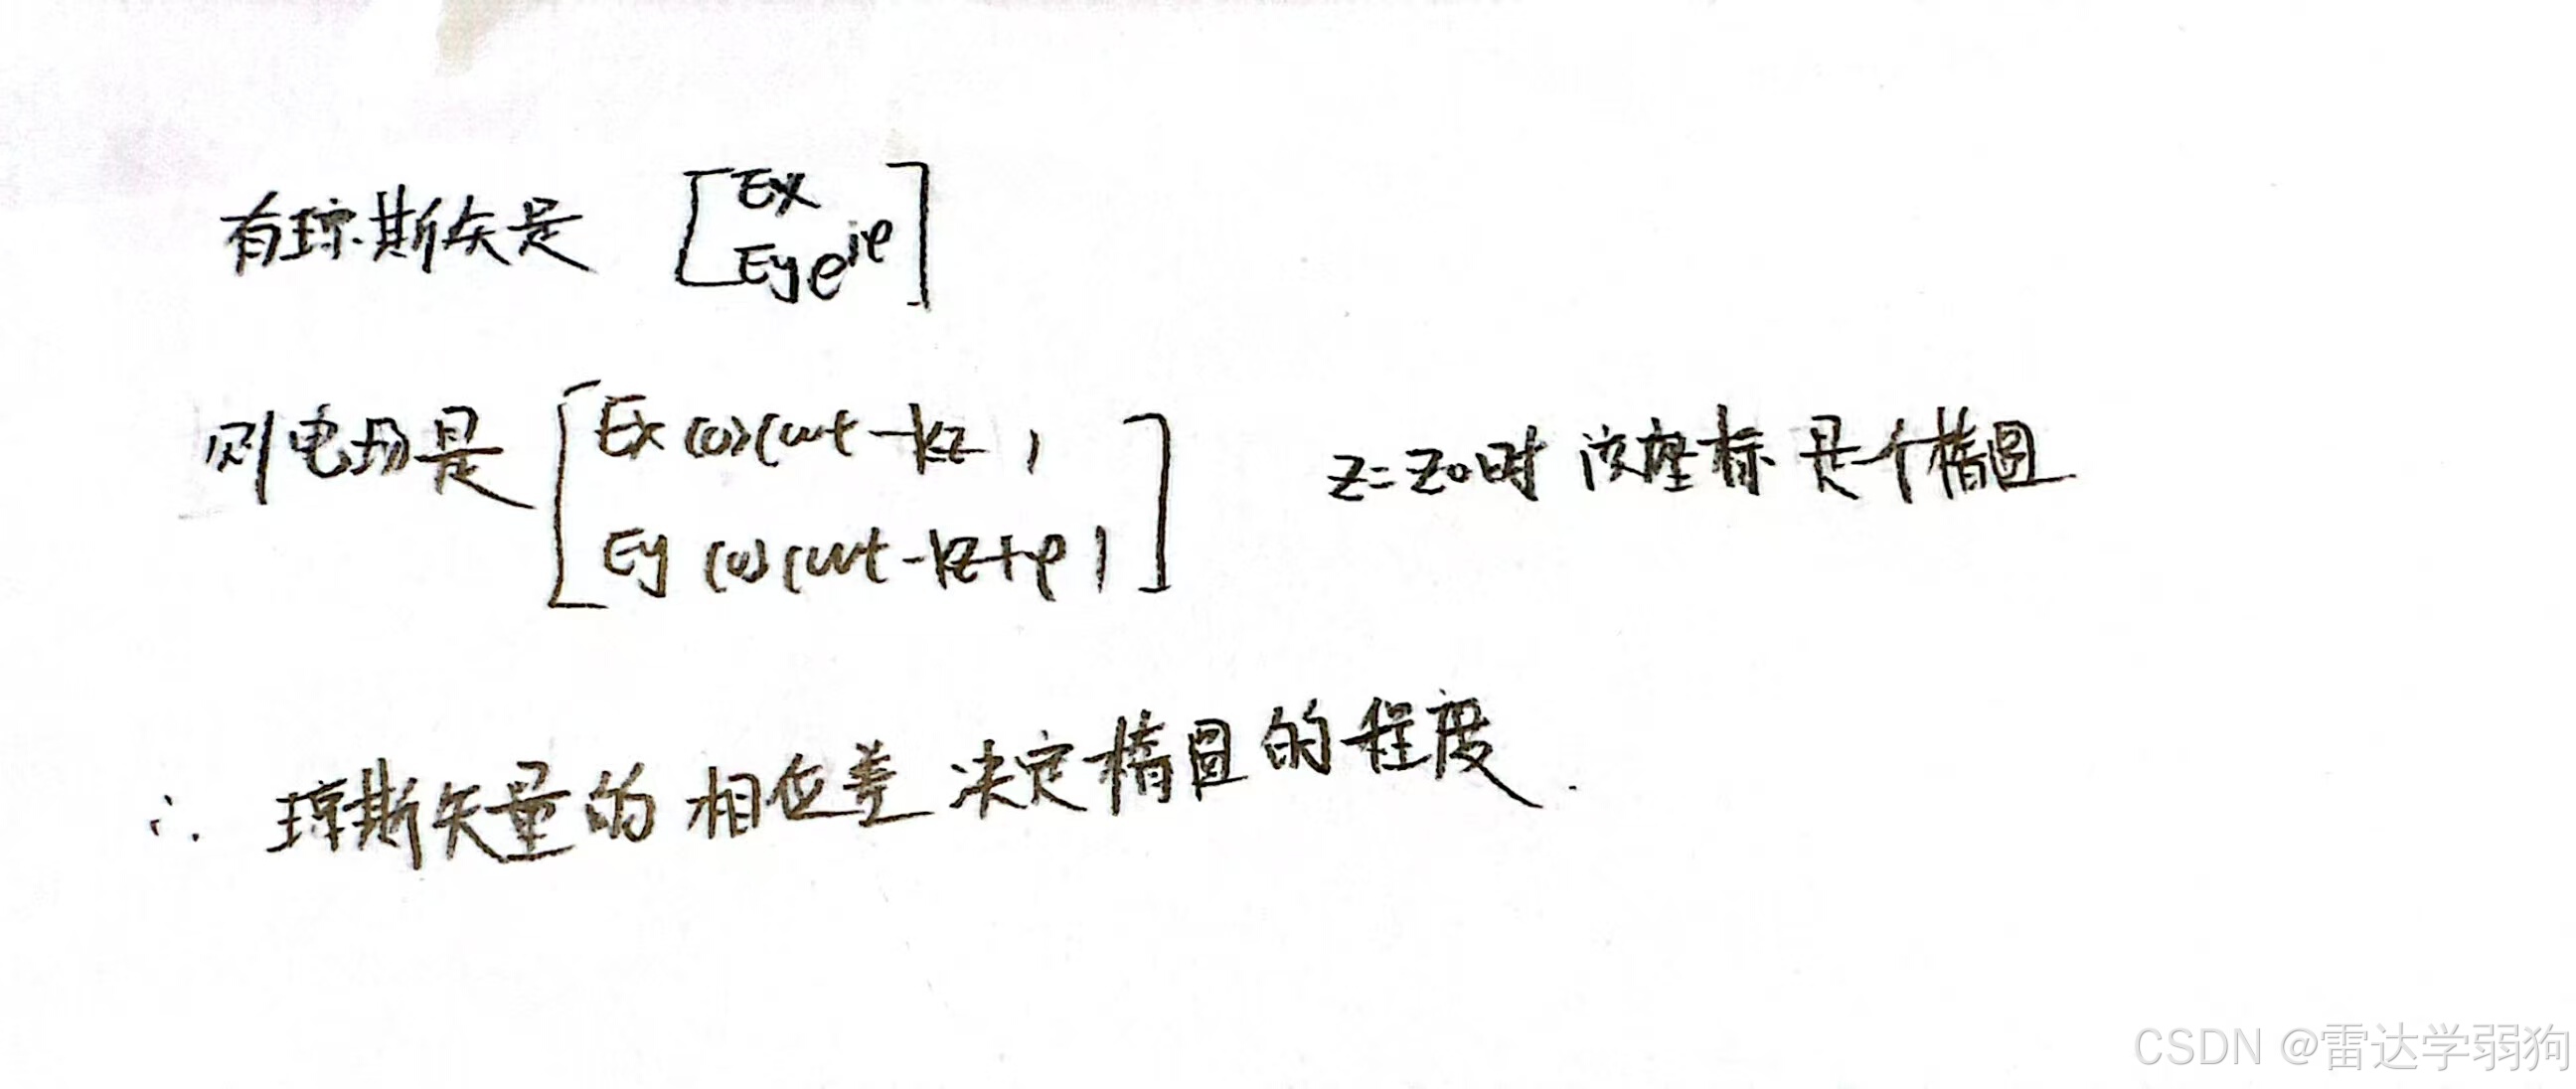 有琼斯矢是 [Ex Eye^{iφ}]
则电场是 [Ex cos(wt-kz) Ey cos(wt-kz+φ)] z=z0时 该坐标是个椭圆
∴ 琼斯矢量的相位差决定椭圆的程度.
CSDN @雷达学弱狗